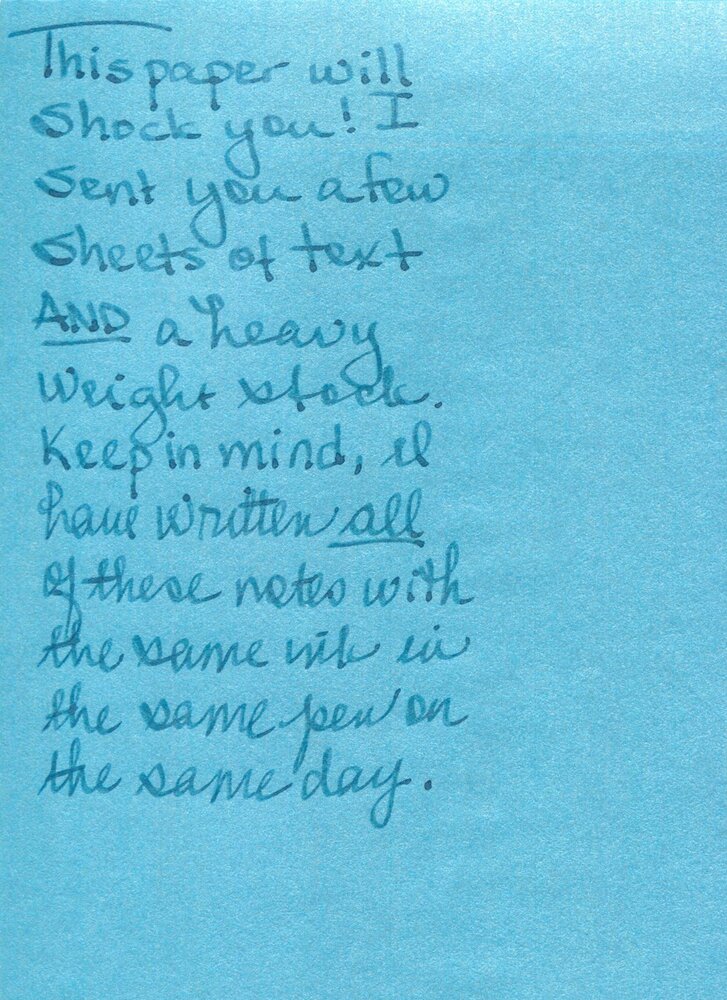 This paper will
Shock you! I
Sent you a few
Sheets of text
AND a heavy
weight stock.
Keep in mind, I
have written all
of these notes with
the same ink in
the same pen on
the same day.